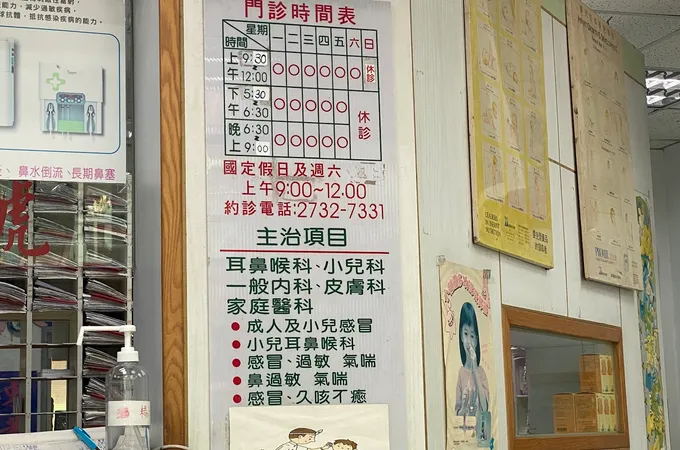 能力,減少過敏疾病,
抵抗感染疾病的能力。
鼻水倒流、長期鼻塞
虎
門診時間表
星期
時間
一 二 三 四 五 六 日
上午 9:30 12:00 ○ ○ ○ ○ ○ ○ 休診
下午 5:30 6:30 ○ ○ ○ ○ ○
晚上 6:30 9:00 ○ ○ ○ ○ ○
休診
國定假日及週六
上午9:00~12.00
約診電話:2732-7331
主治項目
耳鼻喉科、小兒科
一般內科、皮膚科
家庭醫科
● 成人及小兒感冒
● 小兒耳鼻喉科
● 感冒、過敏 氣喘
● 鼻過敏 氣喘
● 感冒、久咳不癒